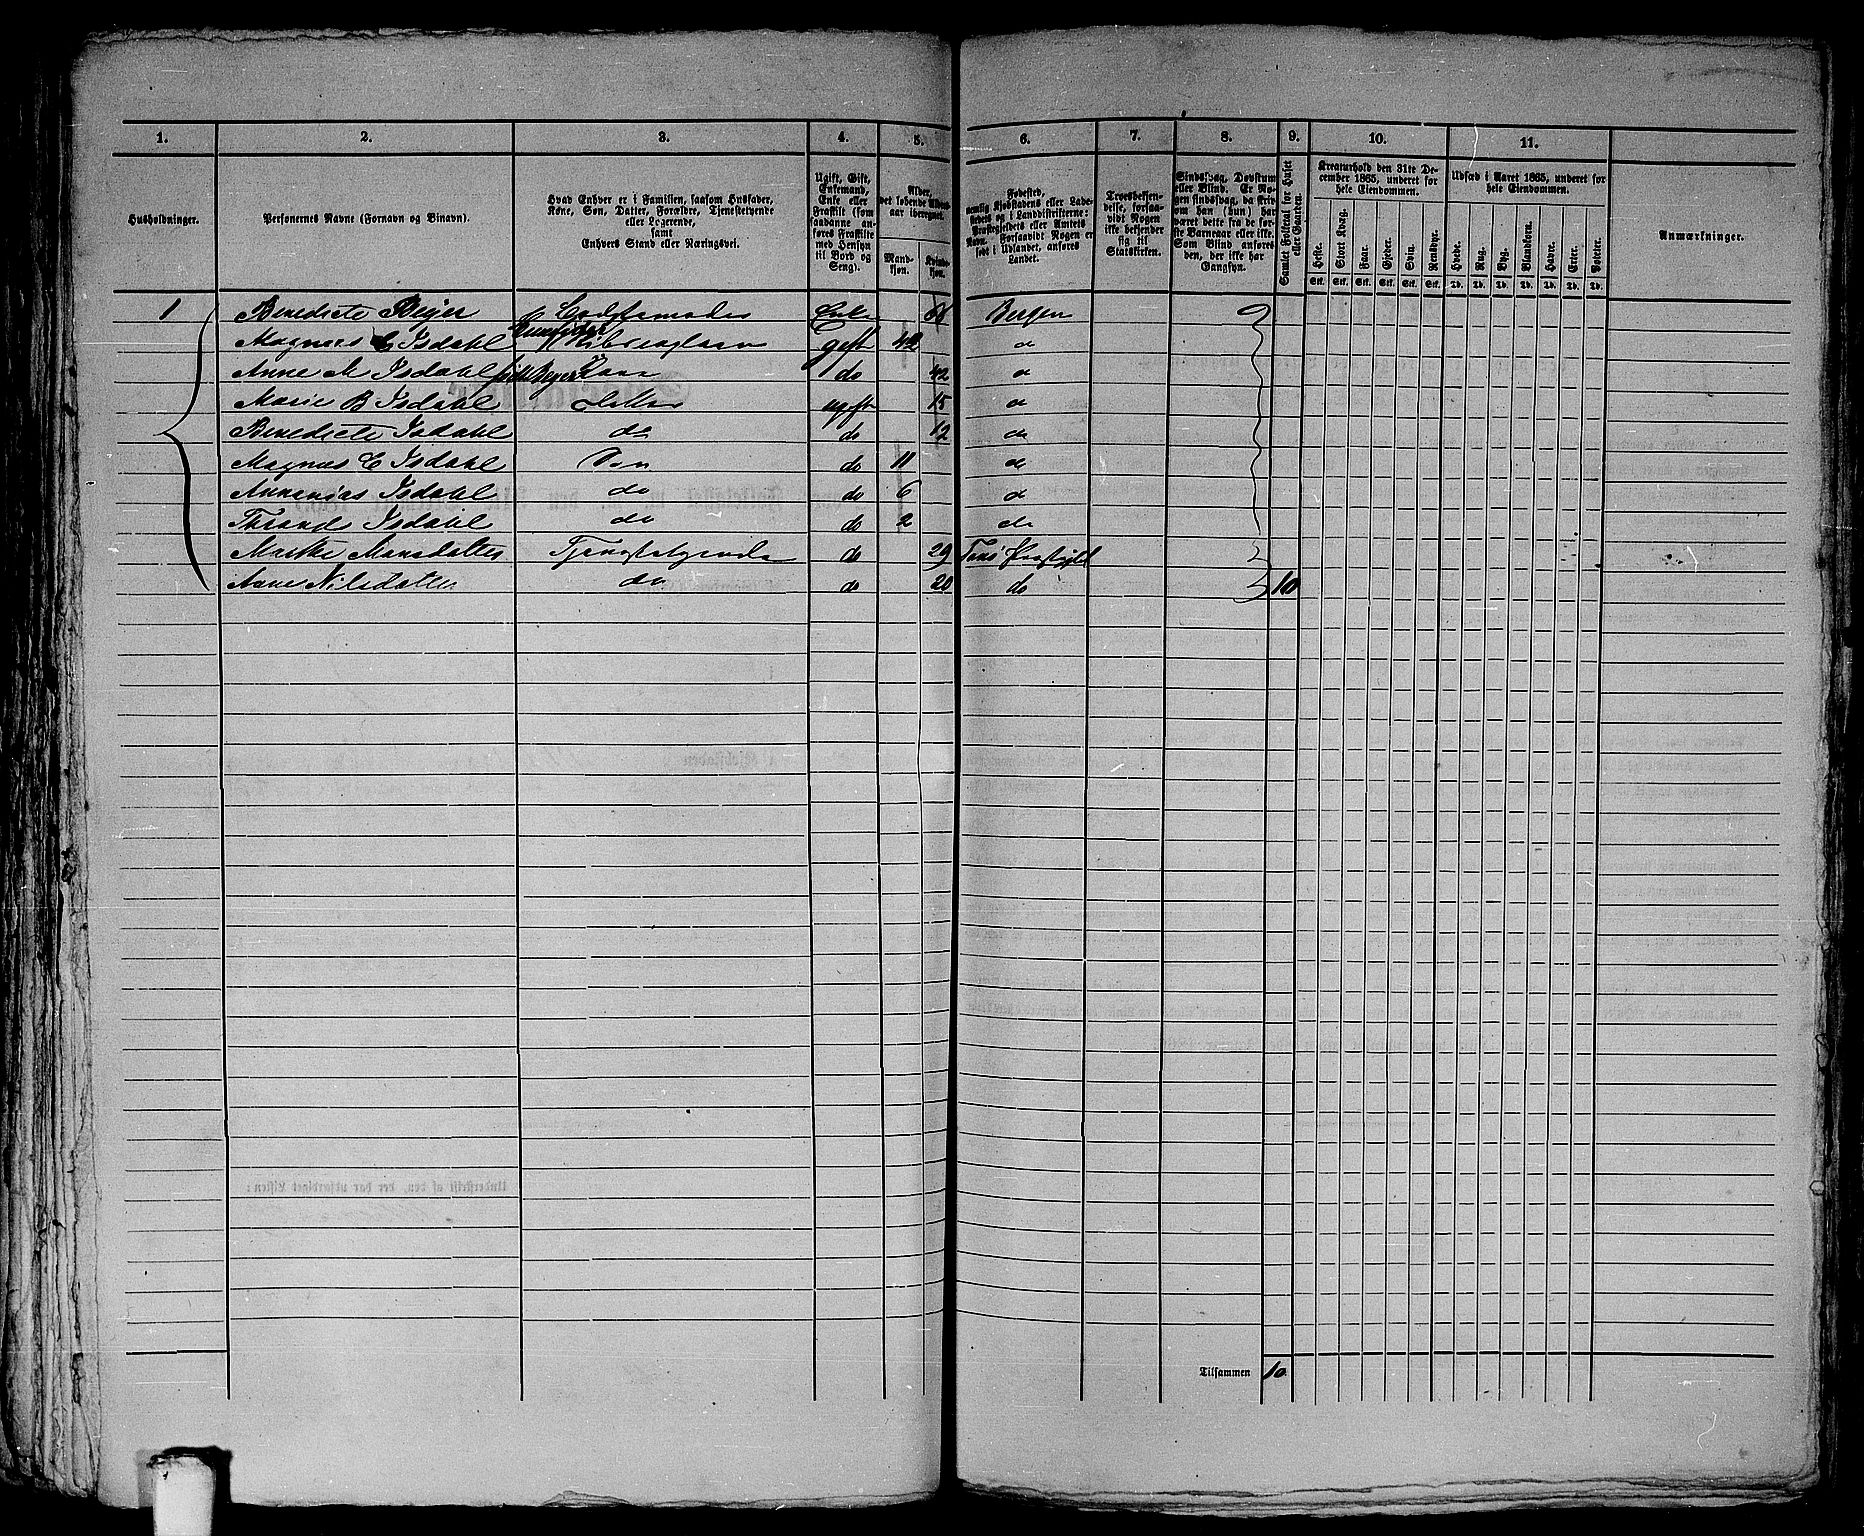 1. 2. 3. 4. 5. 6. 7. 8. 9. 10. 11.
Husholdninger.
Personernes Navne (Fornavn og Binavn).
Hvad Enhver er i Familien, saasom Husfader,
Kone, Søn, Datter, Forældre, Tjenestetyende
eller Logerende,
samt
Enhvers Stand eller Næringsvei.
Ugift, Gift,
Enkemand,
Enke eller
Fraskilt (som
saadanne an-
føres Fraskilte
med Hensyn
til Bord og
Seng).
Alder,
det løbende Alders-
aar iberegnet.
Mand-
kjøn.
Kvinde-
kjøn.
Fødested,
nemlig Kjøbstadens eller Lade-
stedets og i Landdistrikterne:
Præstegjeldets eller Amtets
Navn. Forsaavidt Nogen er
født i Udlandet, anføres
Landet.
Troesbekjen-
delse, forsaa-
vidt Nogen
ikke bekjender
sig til
Statskirken.
Sindssvag, Døvstum
eller Blind. Er No-
gen sindssvag, da skriv
om han (hun) har
været dette fra de før-
ste Barneaar eller ikke.
Som Blind anføres
den, der ikke har
Gangsyn.
Samlet Folketal for Huset
eller Gaarden.
Kreaturhold den 31te De-
cember 1865, underet for
hele Eiendommen.
Heste. Stort Kvæg. Faar. Gjeder. Svin. Rensdyr.
Stk. Stk. Stk. Stk. Stk. Stk.
Udsæd i Aaret 1865, underet for
hele Eiendommen.
Hvede. Rug. Byg. Blandkorn. Havre. Erter. Poteter.
Td. Td. Td. Td. Td. Td. Td.
Anmærkninger.
1 Benedicte Beyer Enke Bergen
Magnus C Isdahl gift 42 do
Anne M Isdahl født Beyer Kone do 42 do
Marie B Isdahl Datter ugift 15 do
Benedicte Isdahl do do 12 do
Magnus C Isdahl Søn do 11 do
Isdahl do do 6 do
Isdahl do do 2 do
Monsdatter Tjenestetyende do 29
Anne Nilsdatter do do 20 do 10
Tilsammen 10